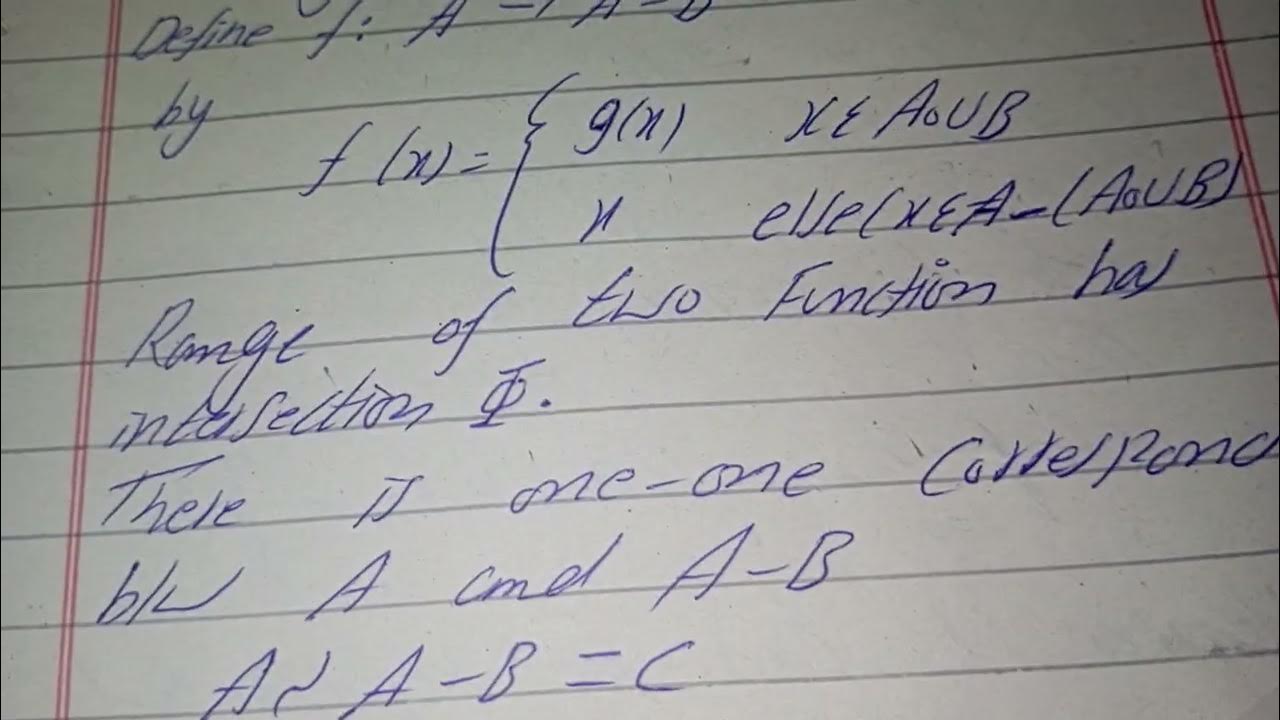 Define f: A → A-B
by
f(x) = { g(x) x ε A₀∪B
x else(x ε A-(A₀∪B)
Range of two Function has
intersection Φ.
There is one-one Correspond
b/w A and A-B
A ~ A-B = C